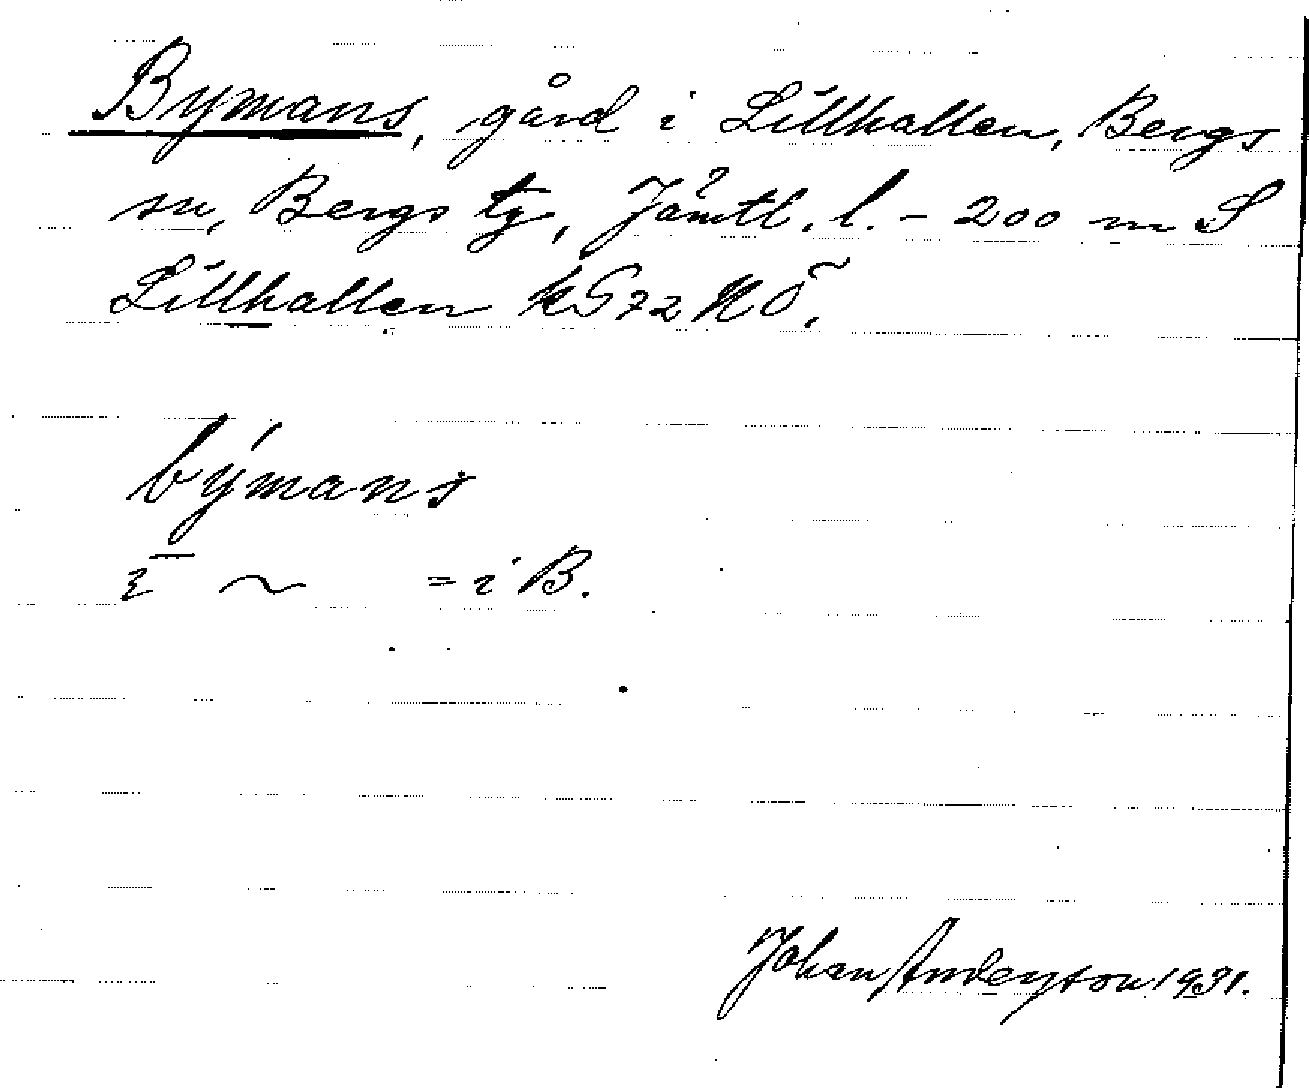 Bymans, gård i Lillhallen, Bergs
sn, Bergs tg, Jämtl. l. – 200 m S
Lillhallen kG72NÖ.
býmans
ɪ̄ ~ = i B.
Johan Andersson 1931.